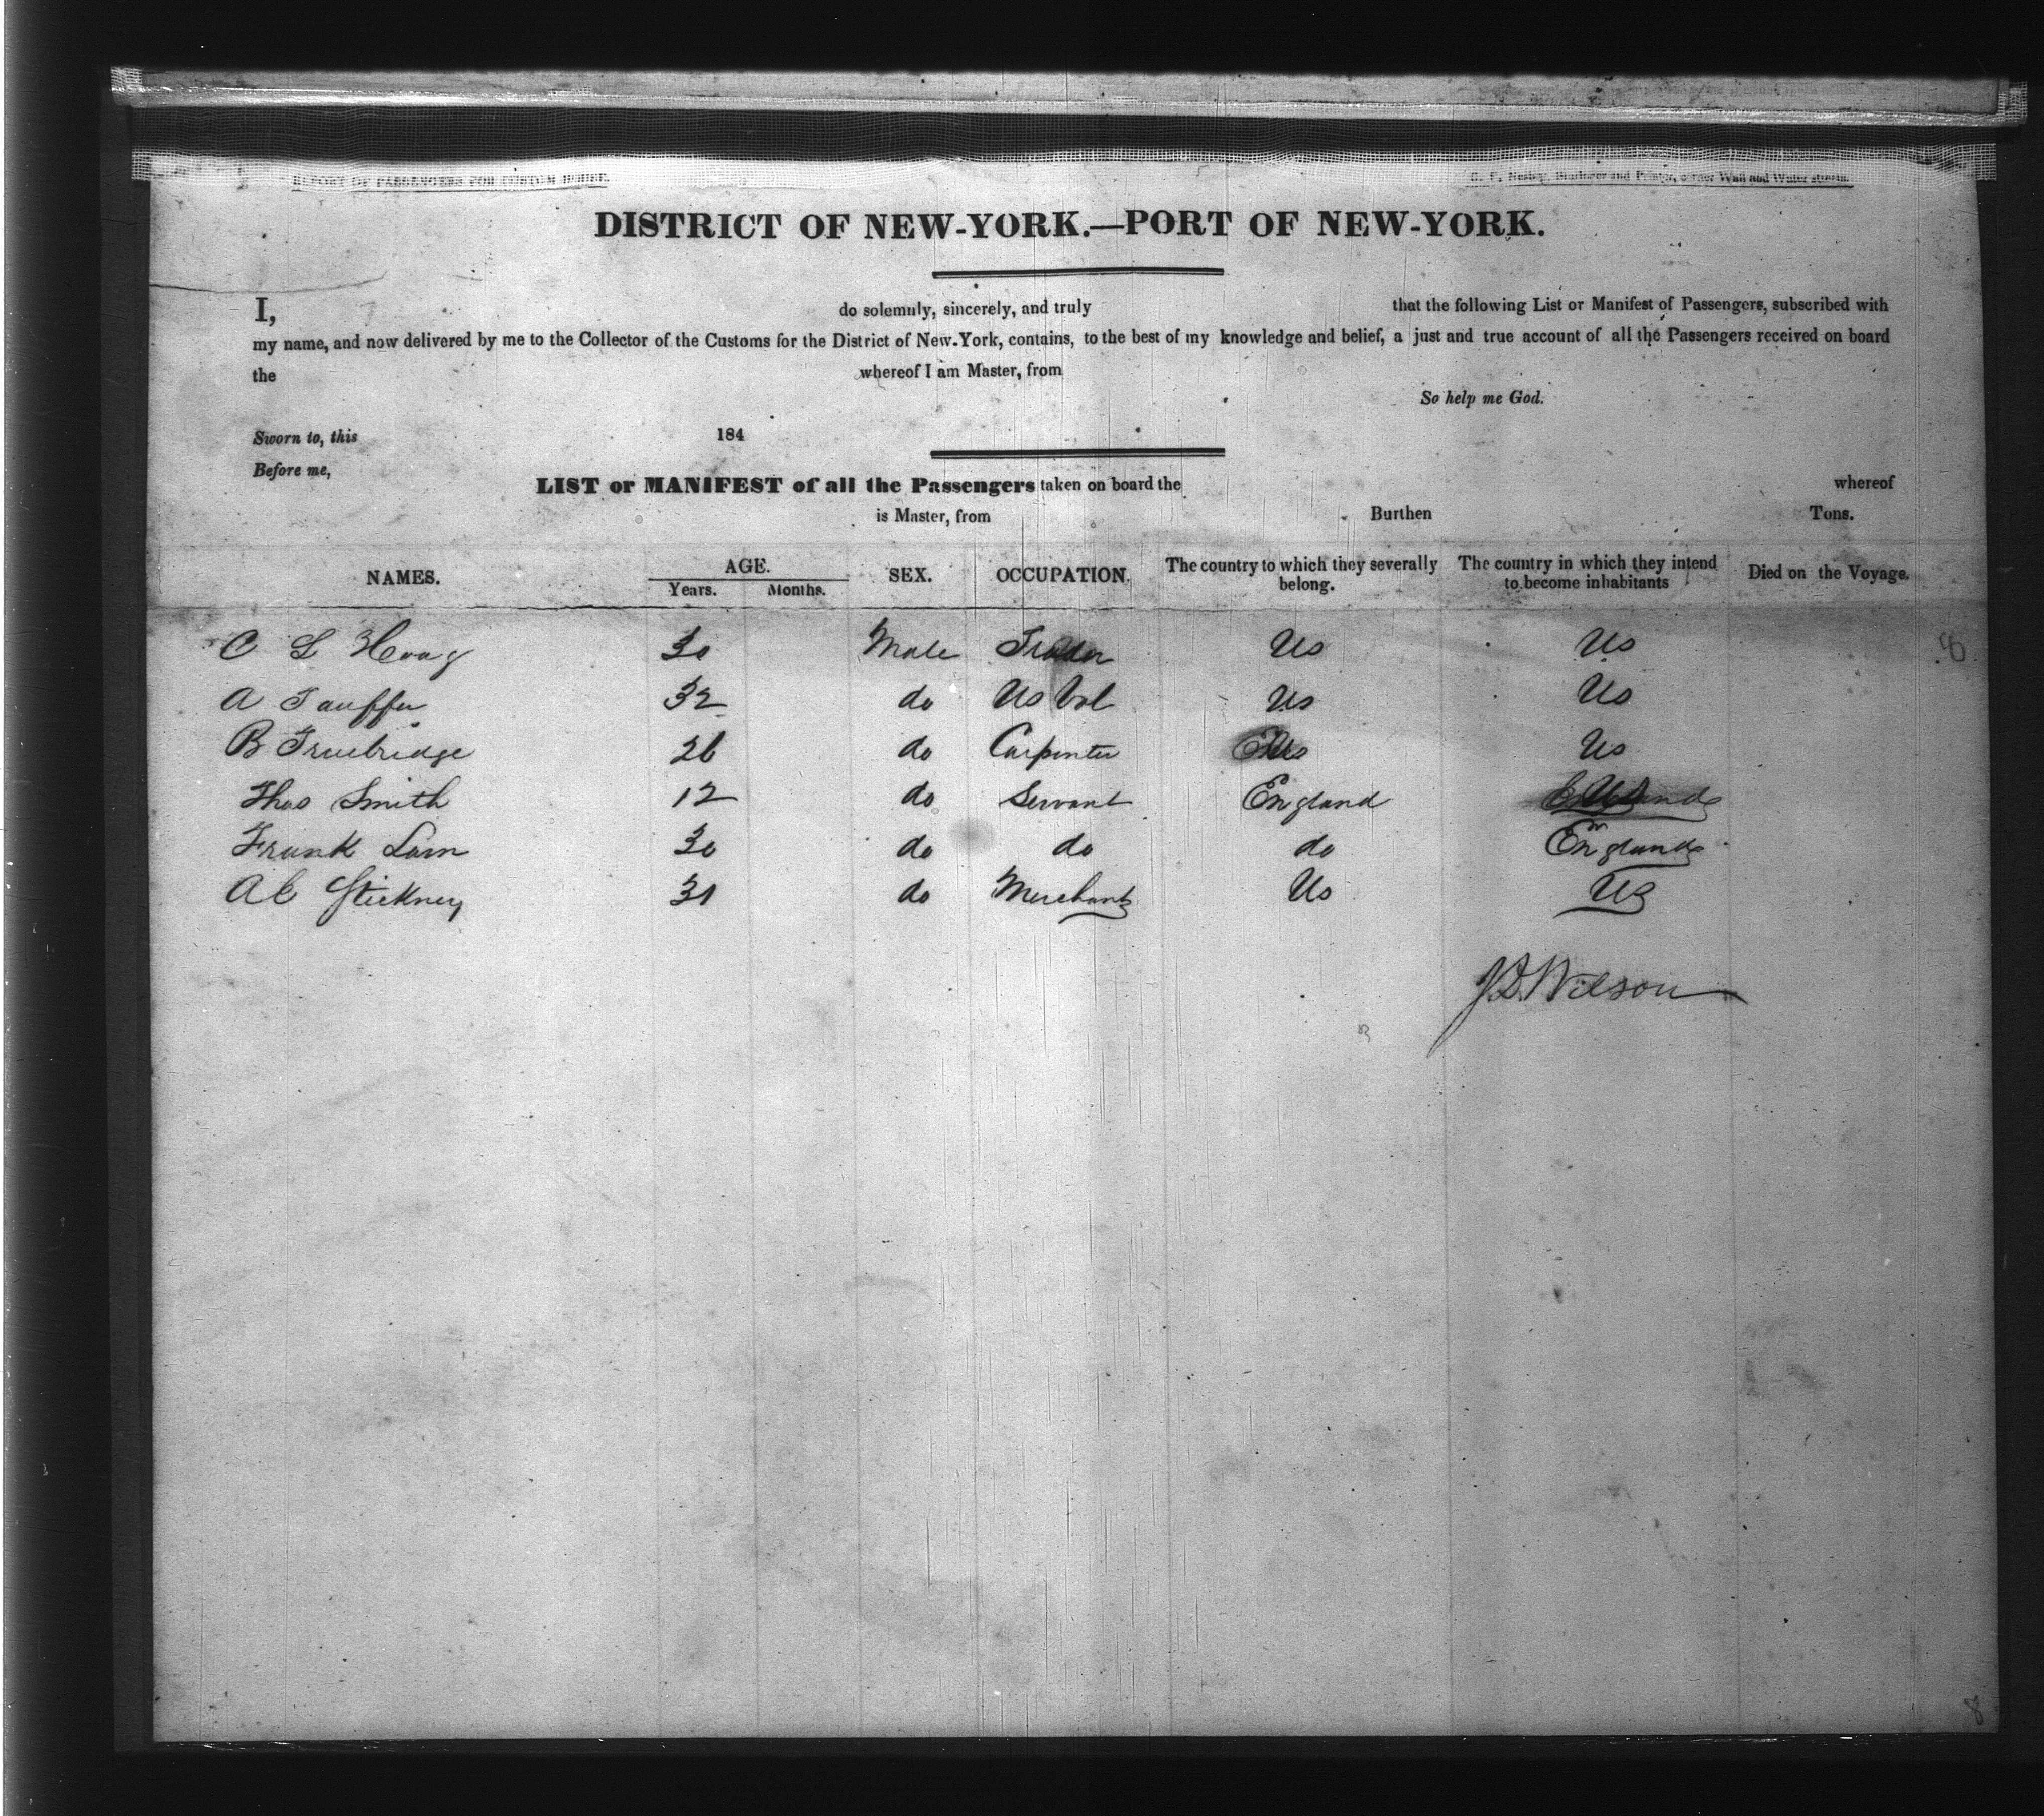 REPORT OF PASSENGERS FOR CUSTOM HOUSE.
Stationer and Printer, corner Wall and Water streets.
DISTRICT OF NEW-YORK.—PORT OF NEW-YORK.
I, do solemnly, sincerely, and truly that the following List or Manifest of Passengers, subscribed with
my name, and now delivered by me to the Collector of the Customs for the District of New-York, contains, to the best of my knowledge and belief, a just and true account of all the Passengers received on board
the whereof I am Master, from
So help me God.
Sworn to, this 184
Before me,
LIST or MANIFEST of all the Passengers taken on board the whereof
is Master, from Burthen Tons.
NAMES. AGE. Years. Months. SEX. OCCUPATION. The country to which they severally belong. The country in which they intend to become inhabitants Died on the Voyage.
C L Hoag 30 Male Trader Us Us 8
A Tauffer 32 do Us Vol Us Us
B Truebridge 26 do Carpenter Us Us
Thos Smith 12 do Servant England
Frank Lam 30 do do do England
A C Stickney 31 do Merchant Us Us
J.D. Wilson
8